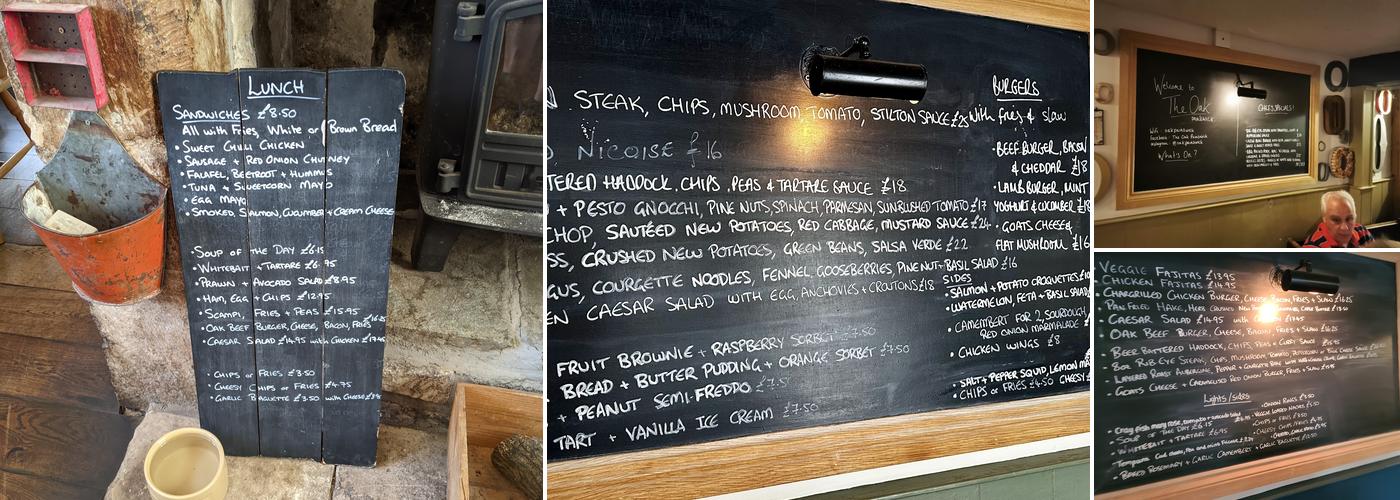 LUNCH
SANDWICHES £8.50
All with Fries, White or Brown Bread
• SWEET CHILLI CHICKEN
• SAUSAGE + RED ONION CHUTNEY
• FALAFEL, BEETROOT + HUMMUS
• TUNA + SWEETCORN MAYO
• EGG MAYO
• SMOKED SALMON, CUCUMBER + CREAM CHEESE
SOUP OF THE DAY £6.15
• WHITEBAIT + TARTARE £6.95
• PRAWN + AVOCADO SALAD £8.95
• HAM, EGG + CHIPS £12.95
• SCAMPI, FRIES + PEAS £15.95
• OAK BEEF BURGER, CHEESE, BACON, FRIES £16.25
• CAESAR SALAD £14.95 with CHICKEN £17.45
• CHIPS or FRIES £3.50
• CHEESY CHIPS or FRIES £4.75
• GARLIC BAGUETTE £3.50 with CHEESE
N STEAK, CHIPS, MUSHROOM, TOMATO, STILTON SAUCE £25
NICOISE £16
TERED HADDOCK, CHIPS, PEAS & TARTARE SAUCE £18
+ PESTO GNOCCHI, PINE NUTS, SPINACH, PARMESAN, SUNBLUSHED TOMATO £17
CHOP, SAUTÉED NEW POTATOES, RED CABBAGE, MUSTARD SAUCE £24
SS, CRUSHED NEW POTATOES, GREEN BEANS, SALSA VERDE £22
GUS, COURGETTE NOODLES, FENNEL, GOOSEBERRIES, PINENUT + BASIL SALAD £16
EN CAESAR SALAD WITH EGG, ANCHOVIES + CROUTONS £18
FRUIT BROWNIE + RASPBERRY SORBET £7.50
BREAD + BUTTER PUDDING + ORANGE SORBET £7.50
+ PEANUT SEMI FREDDO £7.5
TART + VANILLA ICE CREAM £7.50
BURGERS
with fries & slaw
• BEEF BURGER, BACON
& CHEDDAR £18
• LAMB BURGER, MINT
YOGHURT & CUCUMBER £18
• GOATS CHEESE &
FLAT MUSHROOM £16
SIDES
• SALMON + POTATO CROQUETTES £10
• WATERMELON, FETA + BASIL SALAD
• CAMEMBERT FOR 2, SOURDOUGH,
RED ONION MARMALADE
• CHICKEN WINGS £8
• SALT + PEPPER SQUID, LEMON MA
• CHIPS or FRIES £4.50 CHEESY
Welcome to
The Oak
What's On?
VEGGIE FAJITAS £13.95
CHICKEN FAJITAS £14.95
CHARGRILLED CHICKEN BURGER, CHEESE, BACON, FRIES + SLAW £16.25
PAN FRIED HAKE, HERB CRUSHED NEW
CAESAR SALAD £14.95 with £17.45
OAK BEEF BURGER, CHEESE, BACON, FRIES + SLAW £16.25
BEER BATTERED HADDOCK, CHIPS, PEAS + CURRY SAUCE £15.95
8oz RIB EYE STEAK, CHIPS, MUSHROOM, TOMATO,
LAYERED ROAST AUBERGINE, PEPPER + COURGETTE BAKE
GOATS CHEESE + CARAMELISED RED ONION BURGER, FRIES + SLAW
Lights/sides
SOUP OF THE DAY £6.15
WHITEBAIT + TARTARE £6.95
BAKED ROSEMARY + GARLIC CAMEMBERT + GARLIC BAGUETTE
• ONION RINGS £3.50
• CHIPS or FRIES £3.50